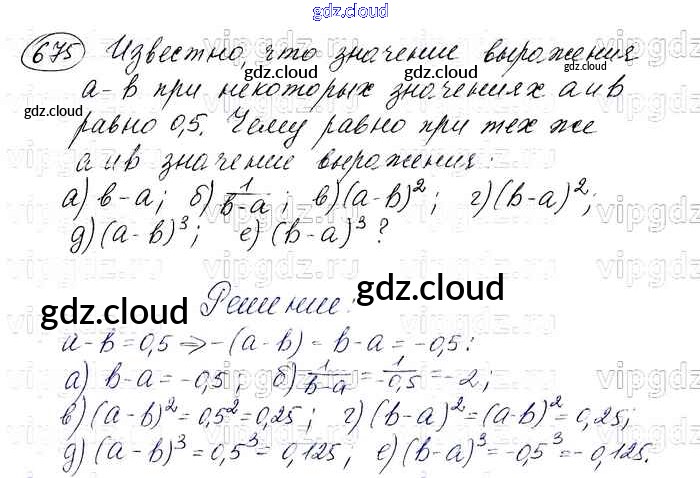 gdz.cloud
675 Известно, что значение выражения
gdz.cloud gdz.cloud
a-b при некоторых значениях a и b
gdz.cloud
равно 0,5. Чему равно при тех же
gdz.cloud
a и b значение выражения:
а) b-a; б) 1/(b-a); в) (a-b)²; г) (b-a)²;
д) (a-b)³; е) (b-a)³?
Решение:
gdz.cloud gdz.cloud
a-b=0,5 ⇒ -(a-b) = b-a = -0,5:
а) b-a = -0,5 б) 1/(b-a) = 1/-0,5 = -2;
в) (a-b)² = 0,5² = 0,25; г) (b-a)² = (a-b)² = 0,25;
д) (a-b)³ = 0,5³ = 0,125; е) (b-a)³ = -0,5³ = -0,125.
gdz.cloud
vipgdz.ru